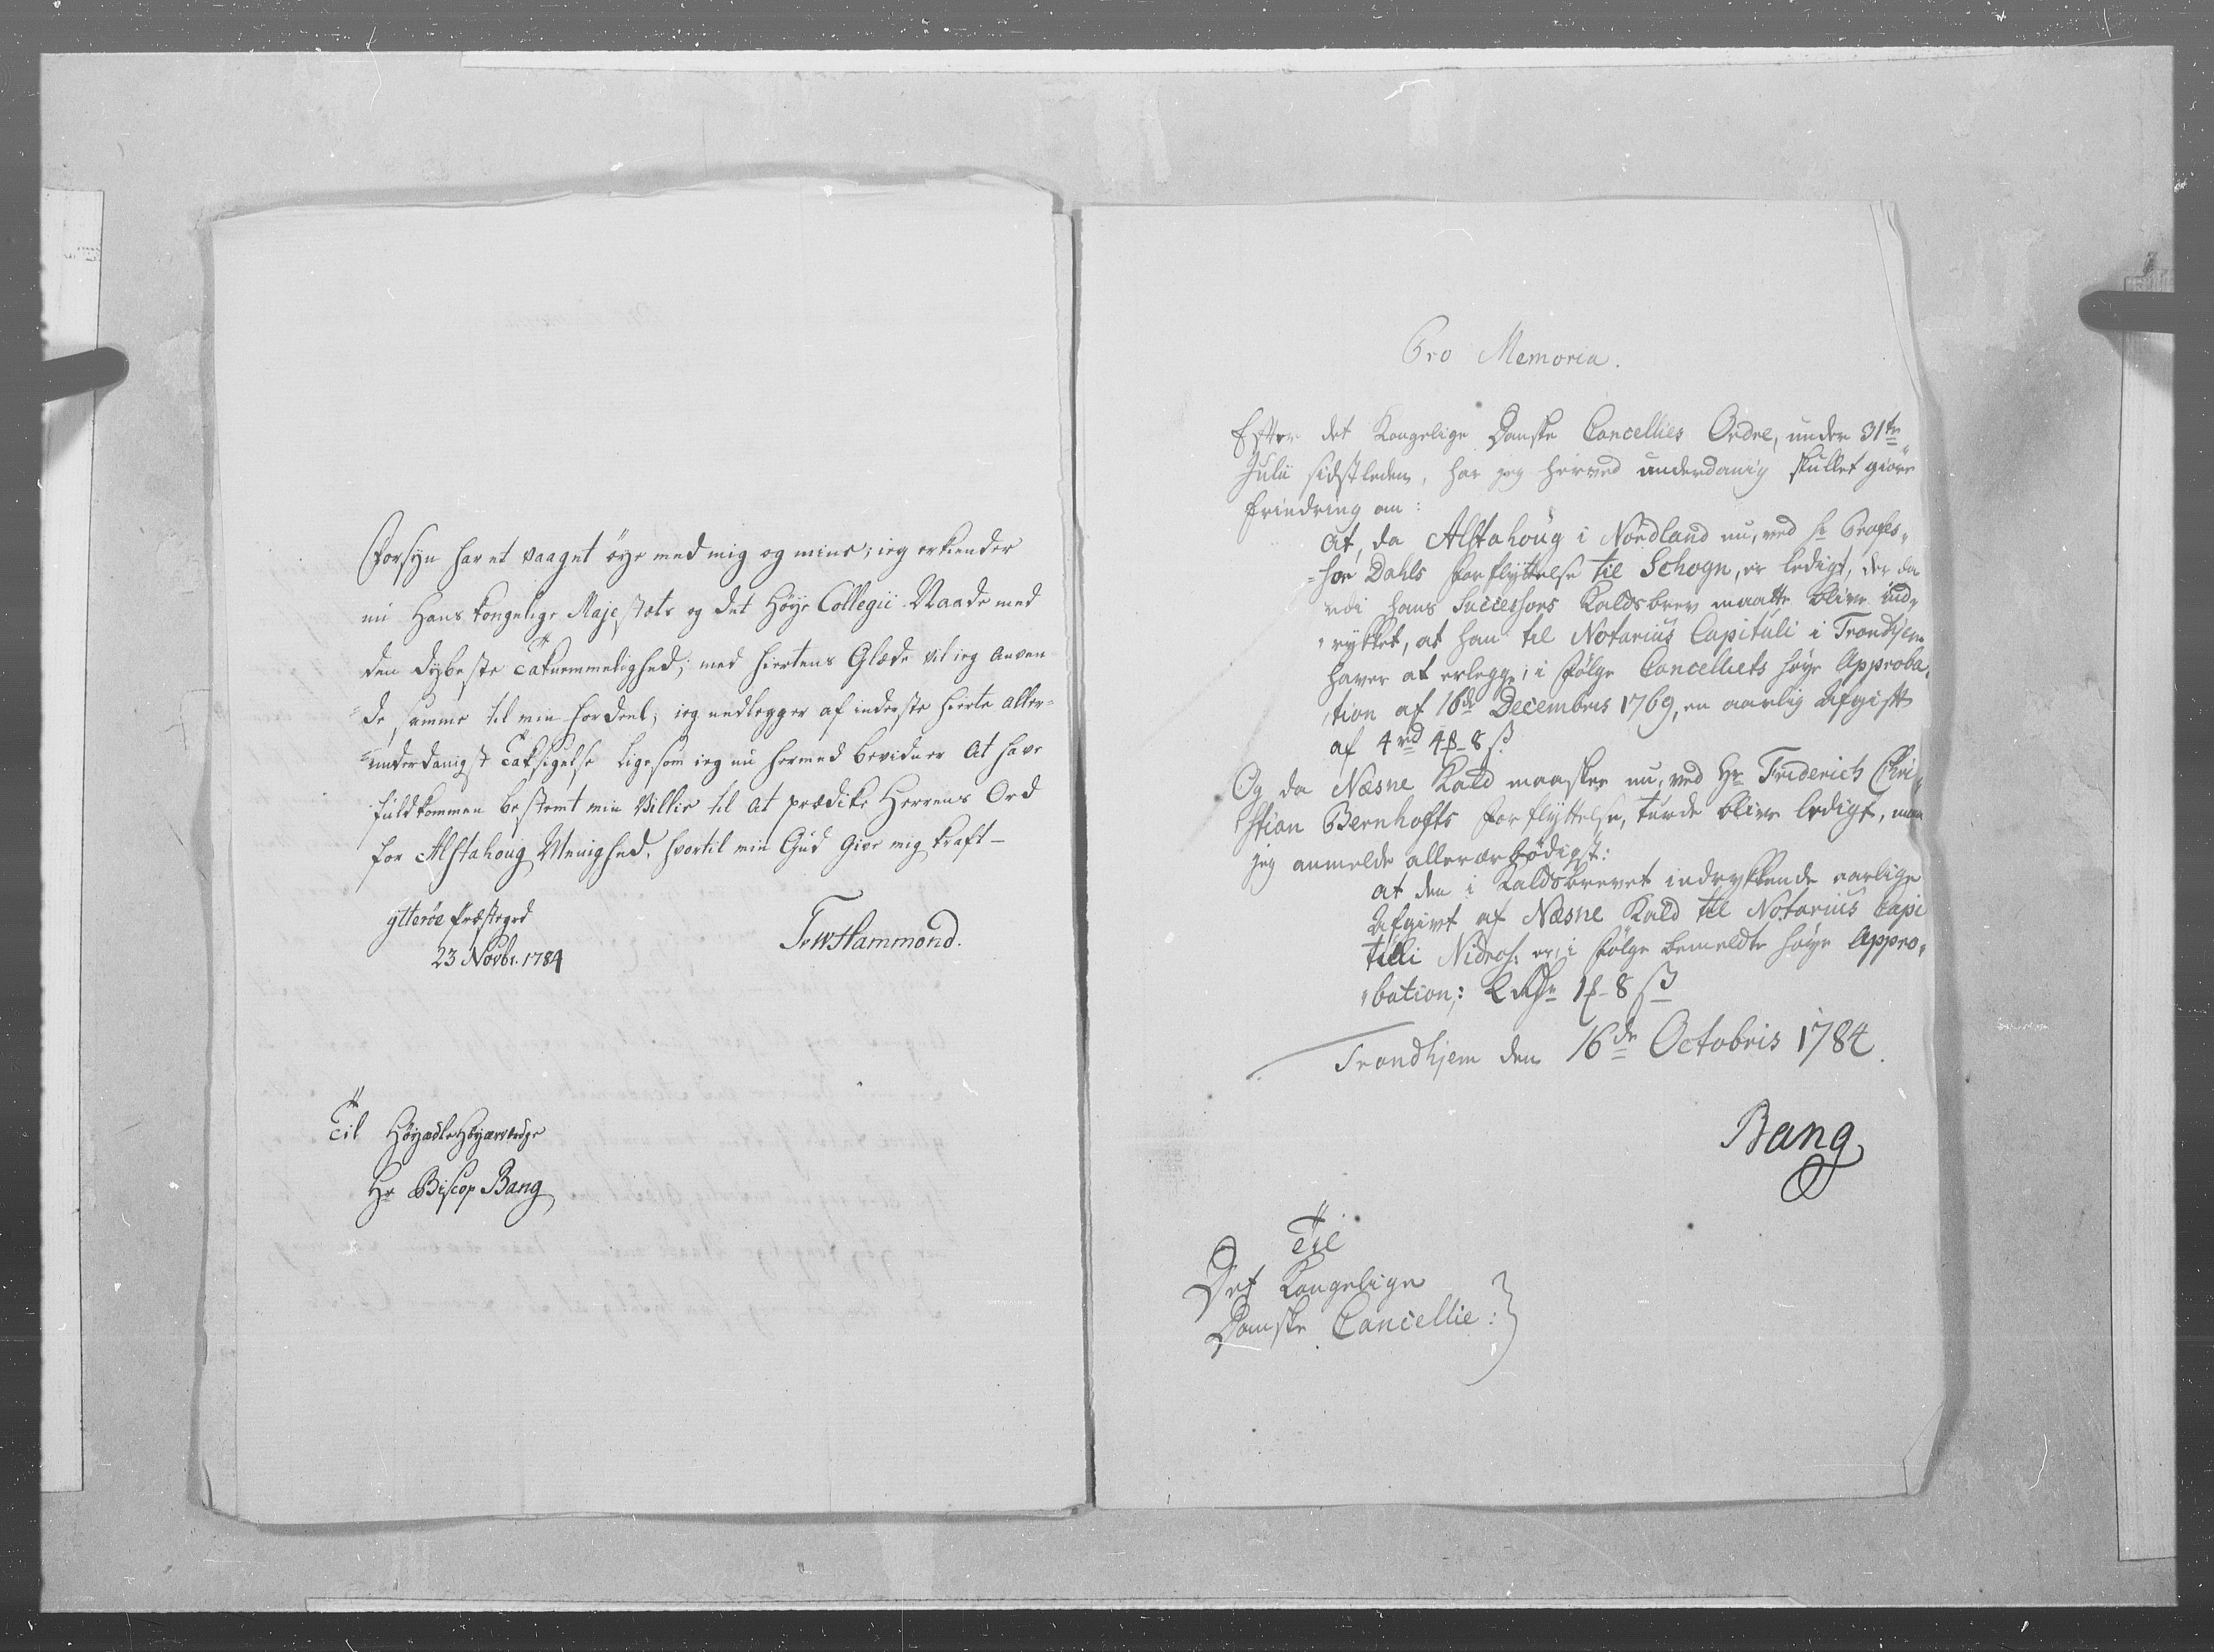 Forsyn har et vaaget øye med mig og mine; ieg erkiender
nu Hans kongelige Majestæts og det Høye Collegii Naade med
den dybeste Taknemmelighed; med hiertens Glæde vil ieg anven
de samme til min fordeel; ieg nedlegger af inderste hierte aller-
underdanigst Taksigelse ligesom ieg nu hermed bevidner at have
fuldkommen bestemt min Villie til at prædike Herrens Ord
for Alstahoug Menighed, hvortil min Gud give mig kraft -
ytterøe Præstegrd
23 Novbr. 1784
Hammond.
Til Høyædle Høyærværdige
Hr Biscop Bang
Pro Memoria.
Efter det Kongelige Danske Cancellies Ordre, under 31te
Julii sidstleden, har jeg herved underdanig skullet giøre
Erindring om:
at, da Alstahoug i Nordland nu, ved Hr Profes„
„sor Dahls Forflyttelse til Schogn, er ledigt, der da
udi hans Successors Kaldsbrev maatte blive ind„
„rykket, at han til Notarius Capituli i Trondhjem
haver at erlegge, i Følge Cancelliets høye Approba„
„tion af 16de Decembris 1769, en aarlig Afgift
af 4 rd 4 8 ß.
Og da Næsne Kald maaskee nu, ved Hr Friderich Chri„
„stian Bernhofts Forflyttelse, turde blive ledigt, maa
jeg anmelde allerærbødigst:
at den i Kaldsbrevet indrykkende aarlige
Afgivt af Næsne Kald til Notarius Capi
tuli Nidros: er, i Følge bemeldte høye Appro„
„bation: 2 Rdr 1 - 8 ß
Trondhjem den 16de Octobris 1784.
Bang
Til
Det Kongelige
Danske Cancellie: